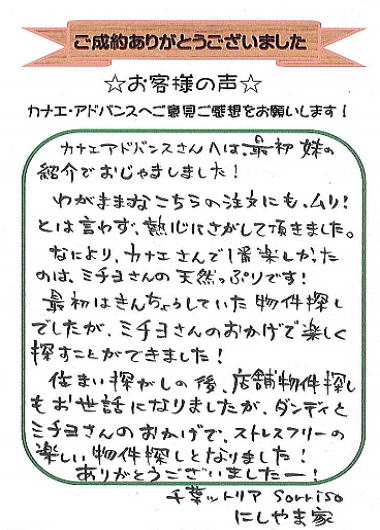 ご成約ありがとうございました
☆お客様の声☆
カナエ・アドバンスへご意見ご感想をお願いします！
カナエアドバンスさんへは、最初 妹の
紹介でおじゃましました！
わがままなこちらの注文にも、ムリ！
とは言わず、熱心にさがして頂きました。
なにより、カナエさんで1番楽しかった
のは、ミチヨさんの天然っぷりです！
最初はきんちょうしていた物件探し
でしたが、ミチヨさんのおかげで楽しく
探すことができました！
住まい探がしの後、店舗物件探し
もお世話になりましたが、ダンディと
ミチヨさんのおかげで、ストレスフリーの
楽しい物件探しとなりました！
ありがとうございましたー！
千葉ットリア Sorriso
にしやま家